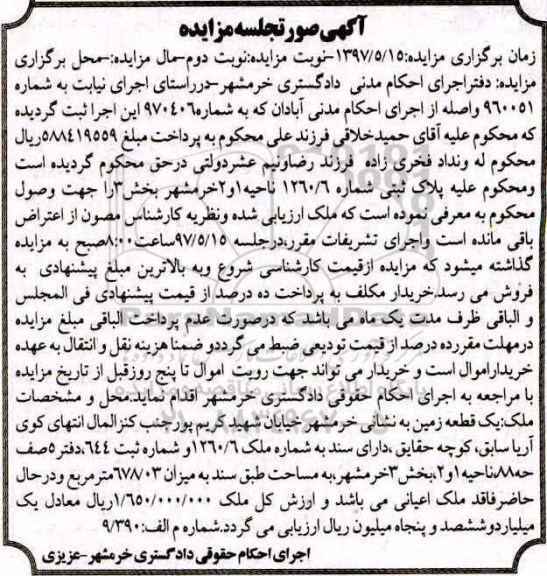 آگهی صورتجلسه مزایده
زمان برگزاری مزایده:۱۳۹۷/۵/۱۵-نوبت مزایده:نوبت دوم-مال مزایده:-محل برگزاری
مزایده: دفتراجرای احکام مدنی دادگستری خرمشهر-درراستای اجرای نیابت به شماره
۹۶۰۰۵۱ واصله از اجرای احکام مدنی آبادان که به شماره۹۷۰۴۰۶ این اجرا ثبت گردیده
که محکوم علیه آقای حمیدخلاقی فرزند علی محکوم به پرداخت مبلغ ۵۸۸۴۱۹۵۵۹ریال
محکوم له ونداد فخری زاده فرزند رضاونیم عشردولتی درحق محکوم گردیده است
ومحکوم علیه پلاک ثبتی شماره ۱۲۶۰/۶ ناحیه۱و۲خرمشهر بخش۳را جهت وصول
محکوم به معرفی نموده است که ملک ارزیابی شده ونظریه کارشناس مصون از اعتراض
باقی مانده است واجرای تشریفات مقرر،درجلسه ۹۷/۵/۱۵ساعت۸:۰۰صبح به مزایده
گذاشته میشود که مزایده ازقیمت کارشناسی شروع وبه بالاترین مبلغ پیشنهادی به
فروش می رسد.خریدار مکلف به پرداخت ده درصد از قیمت پیشنهادی فی المجلس
و الباقی ظرف مدت یک ماه می باشد که درصورت عدم پرداخت الباقی مبلغ مزایده
درمهلت مقررده درصد از قیمت تودیعی ضبط می گرددو ضمنا هزینه نقل و انتقال به عهده
خریداراموال است و خریدار می تواند جهت رویت اموال تا پنج روزقبل از تاریخ مزایده
با مراجعه به اجرای احکام حقوقی دادگستری خرمشهر اقدام نماید.محل و مشخصات
ملک:یک قطعه زمین به نشانی خرمشهر خیابان شهید کریم پور جنب کنزالمال انتهای کوی
آریا سابق، کوچه حقایق ،دارای سند به شماره ملک ۱۲۶۰/۶و شماره ثبت ۶۴۴،دفتر۵صف
حه۸۸،ناحیه۱و۲،بخش۳خرمشهر،به مساحت طبق سند به میزان ۶۷۸/۰۳مترمربع ودرحال
حاضرفاقد ملک اعیانی می باشد و ارزش کل ملک ۱/۶۵۰/۰۰۰/۰۰۰ریال معادل یک
میلیاردوششصد و پنجاه میلیون ریال ارزیابی می گردد.شماره م الف:۹/۳۹۰
اجرای احکام حقوقی دادگستری خرمشهر-عزیزی